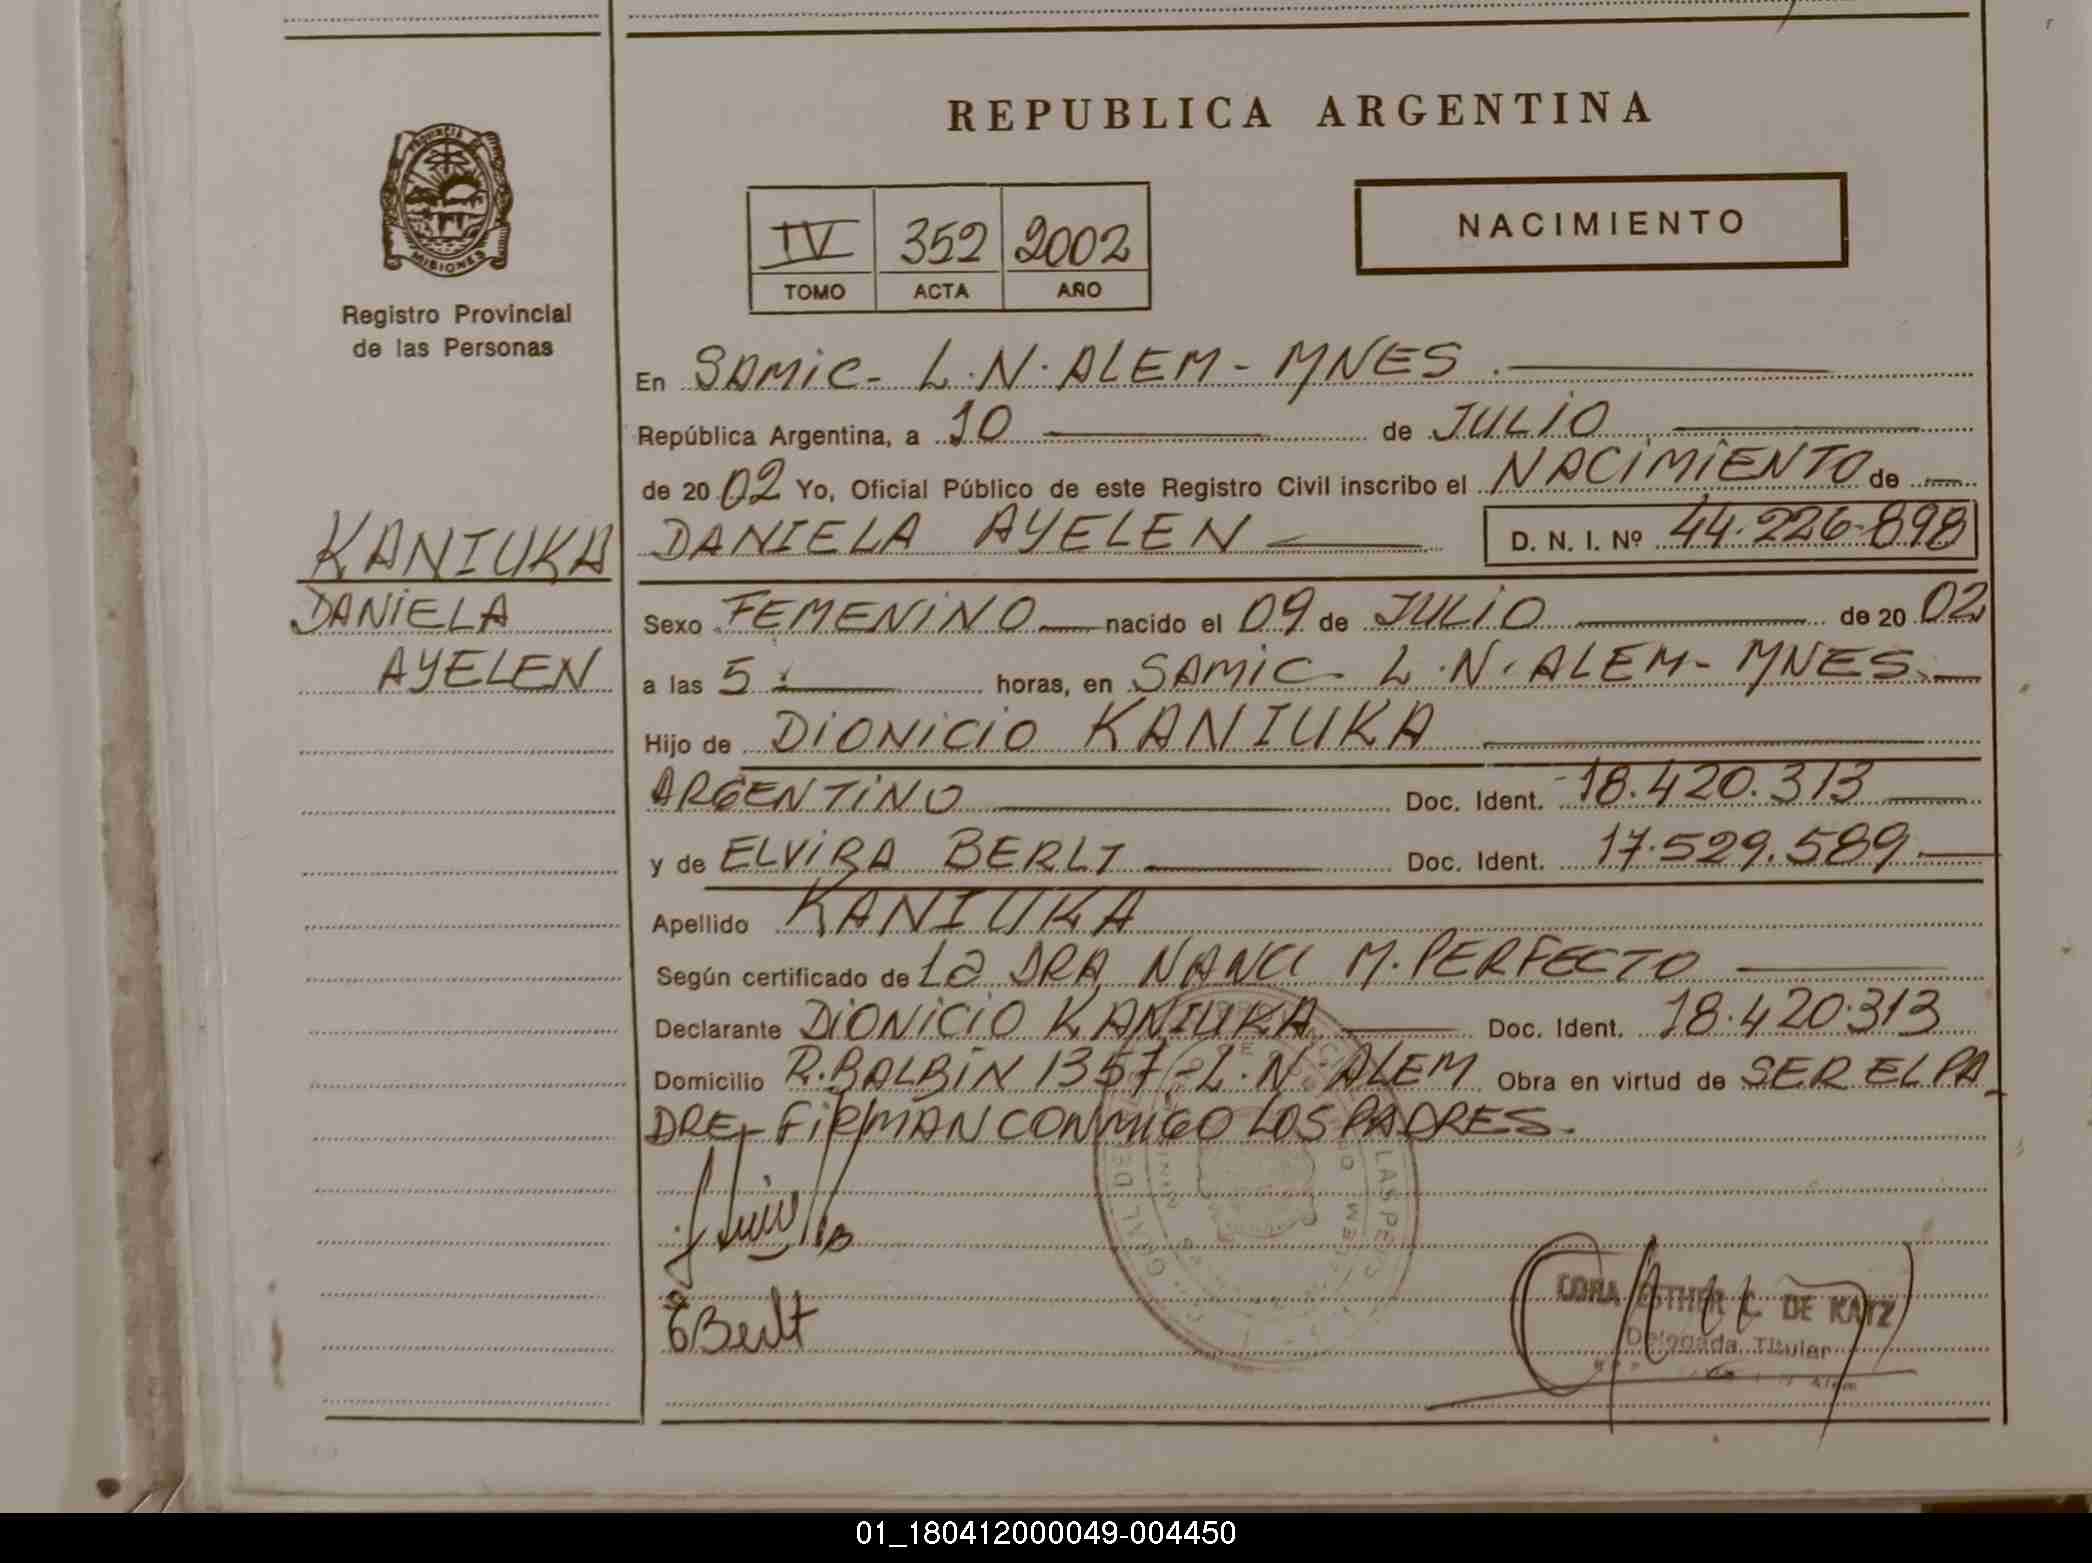 REPUBLICA ARGENTINA
PROVINCIA DE
MISIONES
Registro Provincial
de las Personas
IV 352 2002
TOMO ACTA AÑO
NACIMIENTO
En SAMIC- L.N. ALEM - MNES.
República Argentina, a 10 de JULIO
de 20 02 Yo, Oficial Público de este Registro Civil inscribo el NACIMIENTO de
KANIUKA
DANIELA
AYELEN
DANIELA AYELEN D. N. I. Nº 44.226.898
Sexo FEMENINO nacido el 09 de JULIO de 20 02
a las 5 : horas, en SAMIC- L.N. ALEM - MNES.
Hijo de DIONICIO KANIUKA
ARGENTINO Doc. Ident. 18.420.313
y de ELVIRA BERLT Doc. Ident. 17.529.589.
Apellido KANIUKA
Según certificado de La DRA NANCI M. PERFECTO
Declarante DIONICIO KANIUKA Doc. Ident. 18.420.313
Domicilio R. BALBIN 1357 - L.N. ALEM Obra en virtud de SER EL PA-
DRE - FIRMAN CONMIGO LOS PADRES.
E Berlt
CORA ESTHER C. DE KATZ
Delegada Titular
01_180412000049-004450